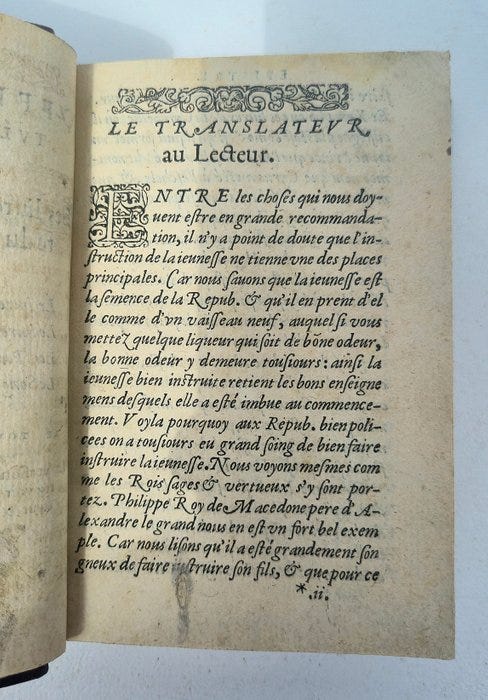 LE TRANSLATEVR
au Lecteur.
ENTRE les choses qui nous doy-
uent estre en grande recommanda-
tion, il n'y a point de doute que l'in-
struction de la ieunesse ne tienne vne des places
principales. Car nous sauons que la ieunesse est
la semence de la Repub. & qu'il en prent d'el
le comme d'vn vaisseau neuf, auquel si vous
mettez quelque liqueur qui soit de bõne odeur,
la bonne odeur y demeure tousiours: ainsi la
ieunesse bien instruite retient les bons enseigne
mens desquels elle a esté imbue au commence-
ment. Voyla pourquoy aux Repub. bien poli-
cees on a tousiours eu grand soing de bien faire
instruire la ieunesse. Nous voyons mesmes com
me les Rois sages & vertueux s'y sont por-
tez. Philippe Roy de Macedone pere d'A-
lexandre le grand nous en est vn fort bel exem
ple. Car nous lisons qu'il a esté grandement son
gneux de faire instruire son fils, & que pour ce
*.ii.